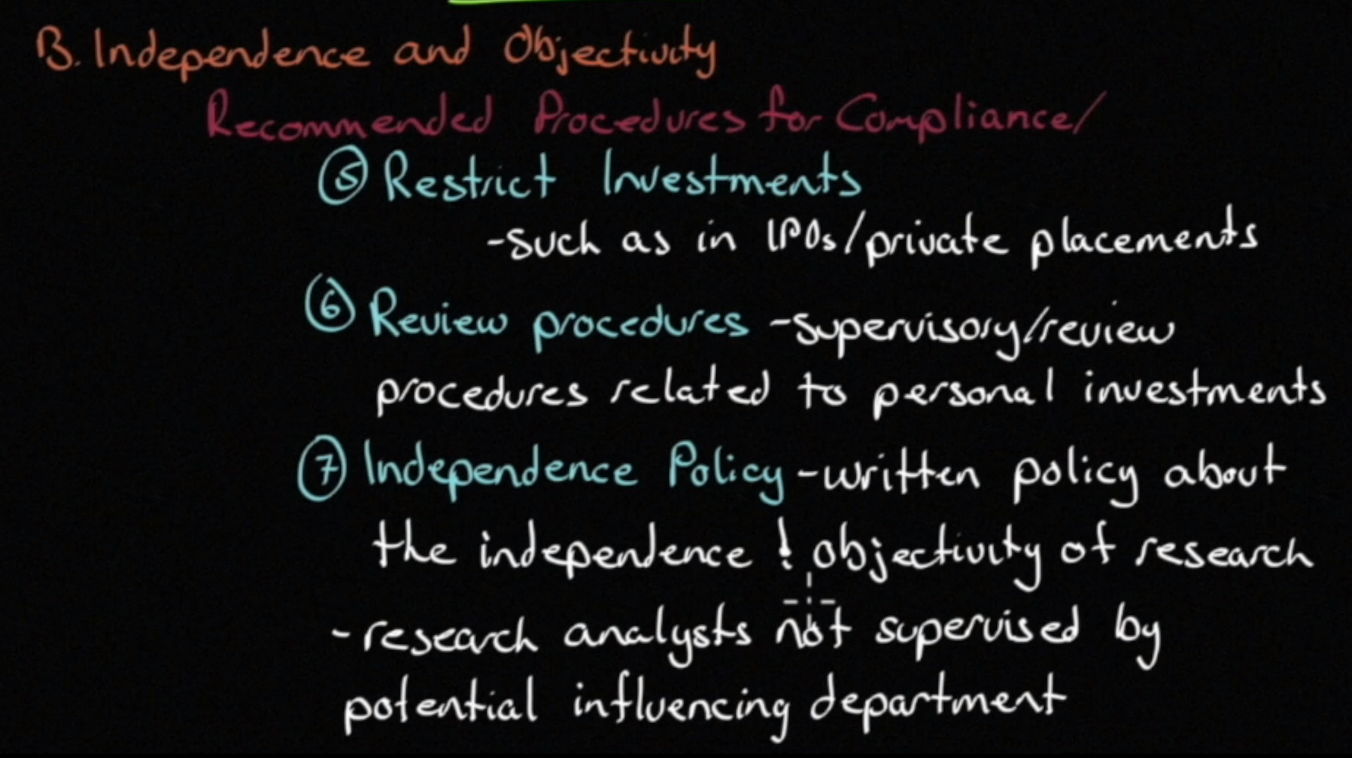 B. Independence and Objectivity
Recommended Procedures for Compliance/
⑤ Restrict Investments
-such as in IPOs/private placements
⑥ Review procedures -supervisory/review
procedures related to personal investments
⑦ Independence Policy -written policy about
the independence ! objectivity of research
-research analysts not supervised by
potential influencing department